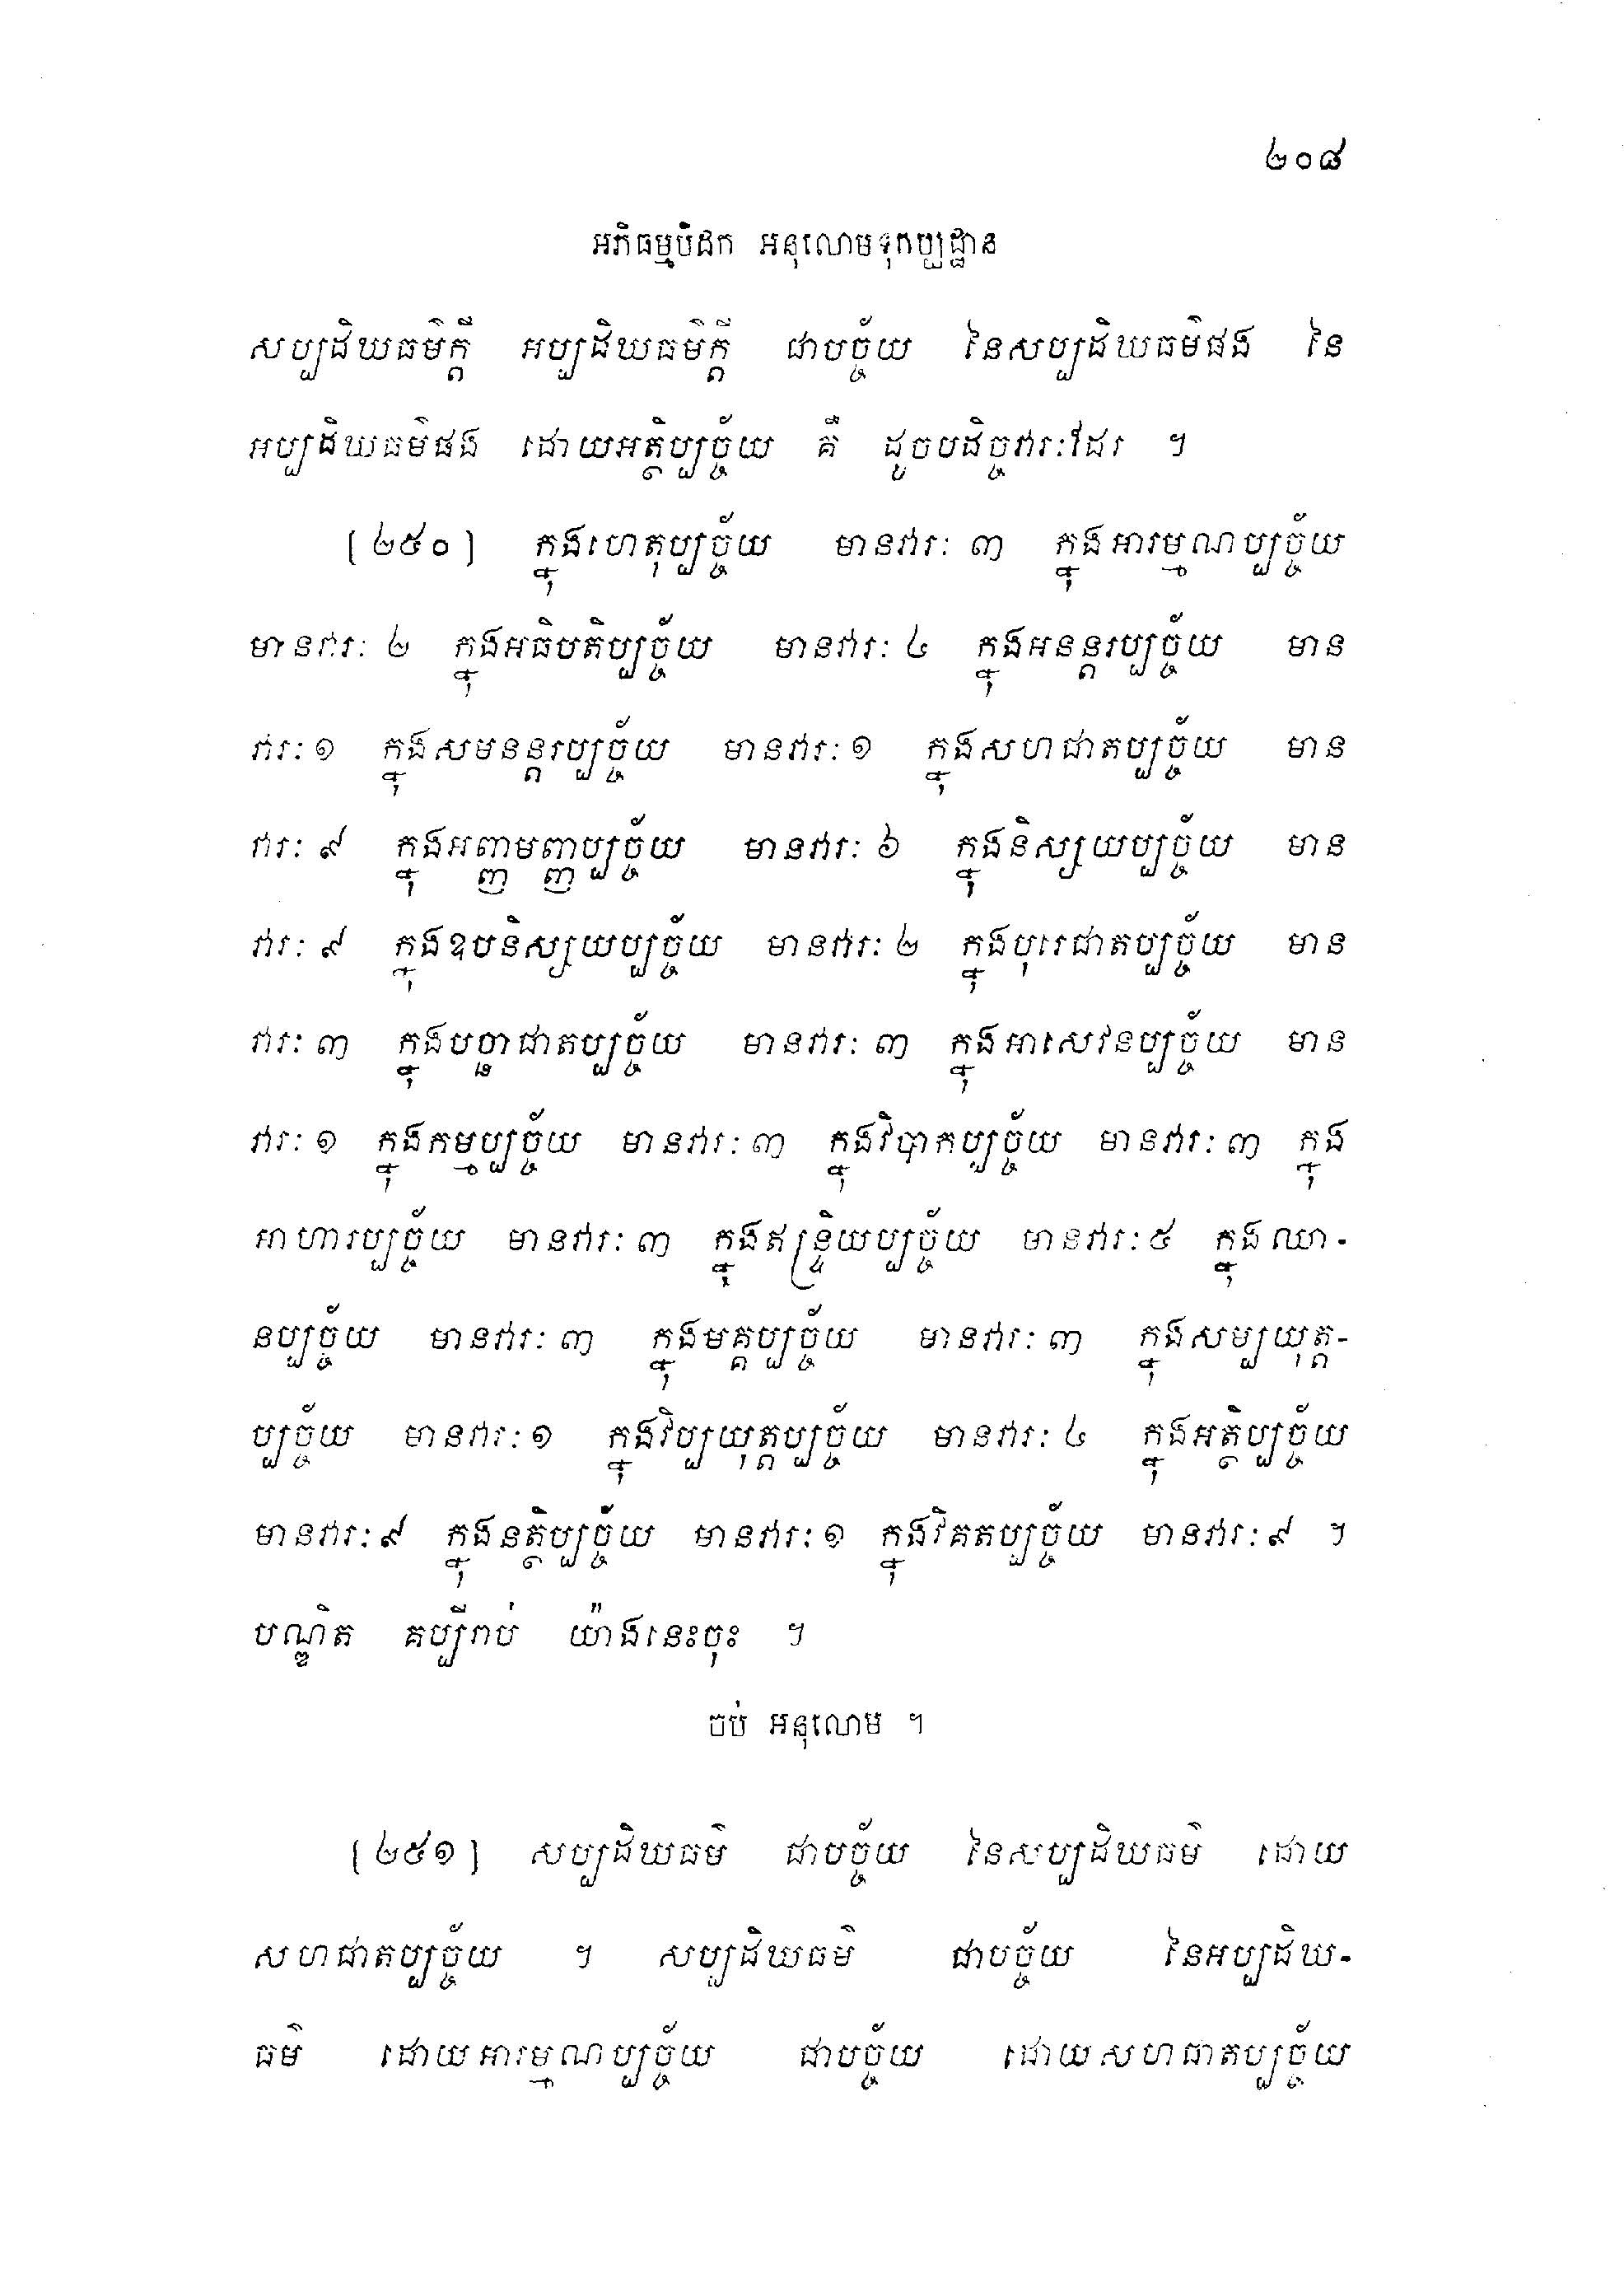 ២០៨
អភិធម្មបិដក អនុលោមទុកប្បដ្ឋាន
សប្បដិឃធម៌ក្តី អប្បដិឃធម៌ក្តី ជាបច្ច័យ នៃសប្បដិឃធម៌ផង នៃ
អប្បដិឃធម៌ផង ដោយអត្ថិប្បច្ច័យ គឺ ដូចបដិច្ចវារៈដែរ ។
[២៥០] ក្នុងហេតុប្បច្ច័យ មានវារៈ ៣ ក្នុងអារម្មណប្បច្ច័យ
មានវារៈ ២ ក្នុងអធិបតិប្បច្ច័យ មានវារៈ ៤ ក្នុងអនន្តរប្បច្ច័យ មាន
វារៈ ១ ក្នុងសមនន្តរប្បច្ច័យ មានវារៈ ១ ក្នុងសហជាតប្បច្ច័យ មាន
វារៈ ៩ ក្នុងអញ្ញាមញ្ញប្បច្ច័យ មានវារៈ ៦ ក្នុងនិស្សយប្បច្ច័យ មាន
វារៈ ៩ ក្នុងឧបនិស្សយប្បច្ច័យ មានវារៈ ២ ក្នុងបុរេជាតប្បច្ច័យ មាន
វារៈ ៣ ក្នុងបច្ឆាជាតប្បច្ច័យ មានវារៈ ៣ ក្នុងអាសេវនប្បច្ច័យ មាន
វារៈ ១ ក្នុងកម្មប្បច្ច័យ មានវារៈ ៣ ក្នុងវិបាកប្បច្ច័យ មានវារៈ ៣ ក្នុង
អាហារប្បច្ច័យ មានវារៈ ៣ ក្នុងឥន្ទ្រិយប្បច្ច័យ មានវារៈ ៥ ក្នុងឈា-
នប្បច្ច័យ មានវារៈ ៣ ក្នុងមគ្គប្បច្ច័យ មានវារៈ ៣ ក្នុងសម្បយុត្ត-
ប្បច្ច័យ មានវារៈ ១ ក្នុងវិប្បយុត្តប្បច្ច័យ មានវារៈ ៤ ក្នុងអត្ថិប្បច្ច័យ
មានវារៈ ៩ ក្នុងនត្ថិប្បច្ច័យ មានវារៈ ១ ក្នុងវិគតប្បច្ច័យ មានវារៈ ៩ ។
បណ្ឌិត គប្បីរាប់ យ៉ាងនេះចុះ ។
ចប់ អនុលោម ។
[២៥១] សប្បដិឃធម៌ ជាបច្ច័យ នៃសប្បដិឃធម៌ ដោយ
សហជាតប្បច្ច័យ ។ សប្បដិឃធម៌ ជាបច្ច័យ នៃអប្បដិឃ-
ធម៌ ដោយអារម្មណប្បច្ច័យ ជាបច្ច័យ ដោយសហជាតប្បច្ច័យ